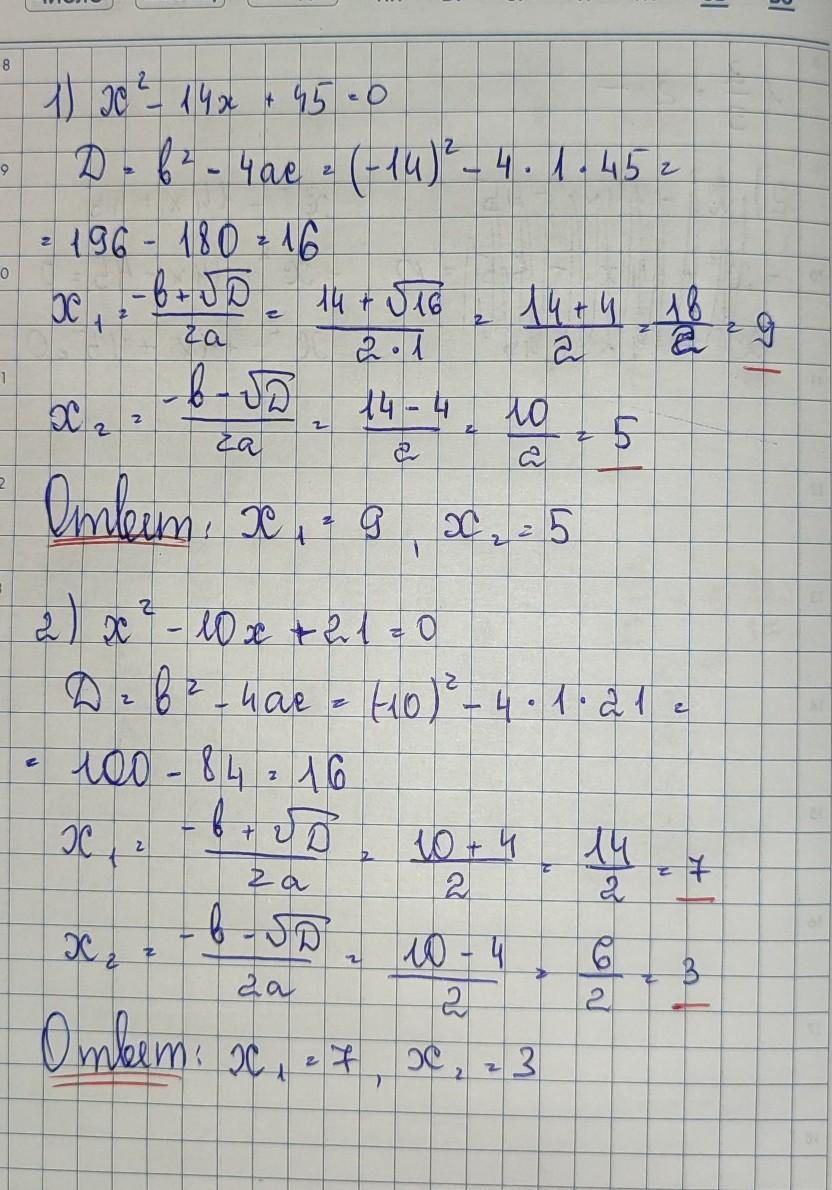 1) x² - 14x + 45 = 0
D = b² - 4ac = (-14)² - 4 · 1 · 45 =
= 196 - 180 = 16
x₁ = (-b + √D)/2a = (14 + √16)/(2 · 1) = (14 + 4)/2 = 18/2 = 9
x₂ = (-b - √D)/2a = (14 - 4)/2 = 10/2 = 5
Ответ: x₁ = 9, x₂ = 5
2) x² - 10x + 21 = 0
D = b² - 4ac = (-10)² - 4 · 1 · 21 =
= 100 - 84 = 16
x₁ = (-b + √D)/2a = (10 + 4)/2 = 14/2 = 7
x₂ = (-b - √D)/2a = (10 - 4)/2 = 6/2 = 3
Ответ: x₁ = 7, x₂ = 3